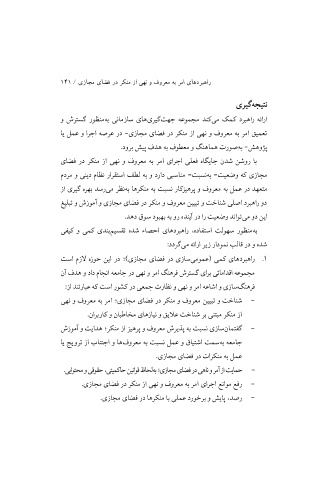 راهبردهای امر به معروف و نهی از منکر در فضای مجازی / ۱۴۱
نتیجه‌گیری
ارائه راهبرد کمک می‌کند مجموعه جهت‌گیری‌های سازمانی به‌منظور گسترش و
تعمیق امر به معروف و نهی از منکر در فضای مجازی- در عرصه اجرا و عمل یا
پژوهش- به‌صورت هماهنگ و معطوف به هدف پیش برود.
با روشن شدن جایگاه فعلی اجرای امر به معروف و نهی از منکر در فضای
مجازی که وضعیت- به‌نسبت- مناسبی دارد و به لطف استقرار نظام دینی و مردم
متعهد در عمل به معروف و پرهیزکار نسبت به منکرها به‌نظر می‌رسد بهره گیری از
دو راهبرد اصلی شناخت و تبیین معروف و منکر در فضای مجازی و آموزش و تبلیغ
این دو می‌تواند وضعیت را در آینده رو به بهبود سوق دهد.
به‌منظور سهولت استفاده، راهبردهای احصاء شده تقسیم‌بندی کمی و کیفی
شده و در قالب نمودار زیر ارائه می‌گردد:
۱. راهبردهای کمی (عمومی‌سازی در فضای مجازی)؛ در این حوزه لازم است
مجموعه اقداماتی برای گسترش فرهنگ امر و نهی در جامعه انجام داد و هدف آن
فرهنگ‌سازی و اشاعه امر و نهی و نظارت جمعی در کشور است که عبارتند از:
- شناخت و تبیین معروف و منکر در فضای مجازی؛ امر به معروف و نهی
از منکر مبتنی بر شناخت علایق و نیازهای مخاطبان و کاربران.
- گفتمان‌سازی نسبت به پذیرش معروف و پرهیز از منکر؛ هدایت و آموزش
جامعه به‌سمت اشتیاق و عمل نسبت به معروف‌ها و اجتناب از ترویج یا
عمل به منکرات در فضای مجازی.
- حمایت از آمر و ناهی در فضای مجازی؛ به‌لحاظ قوانین حاکمیتی، حقوقی و محتوایی.
- رفع موانع اجرای امر به معروف و نهی از منکر در فضای مجازی.
- رصد، پایش و برخورد عملی با منکرها در فضای مجازی.